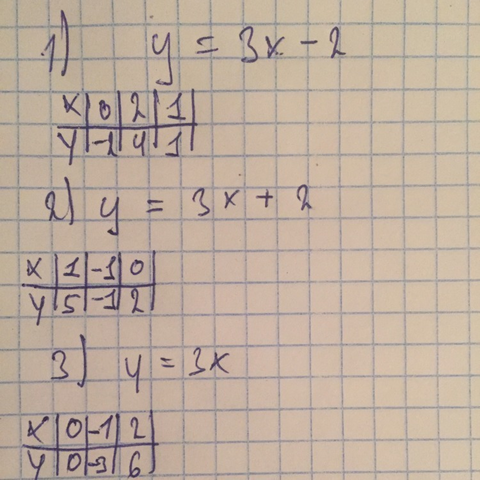 1) y = 3x - 2
x | 0 | 2 | 1 |
y | -2 | 4 | 1 |
2) y = 3x + 2
x | 1 | -1 | 0 |
y | 5 | -1 | 2 |
3) y = 3x
x | 0 | -1 | 2 |
y | 0 | -3 | 6 |